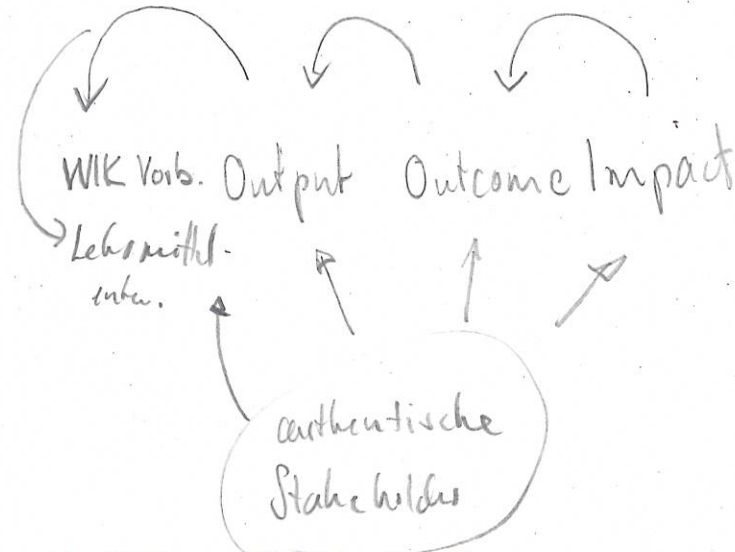 WIK Vorb. Output Outcome Impact
Lehrmittel-
entw.
authentische
Stakeholder